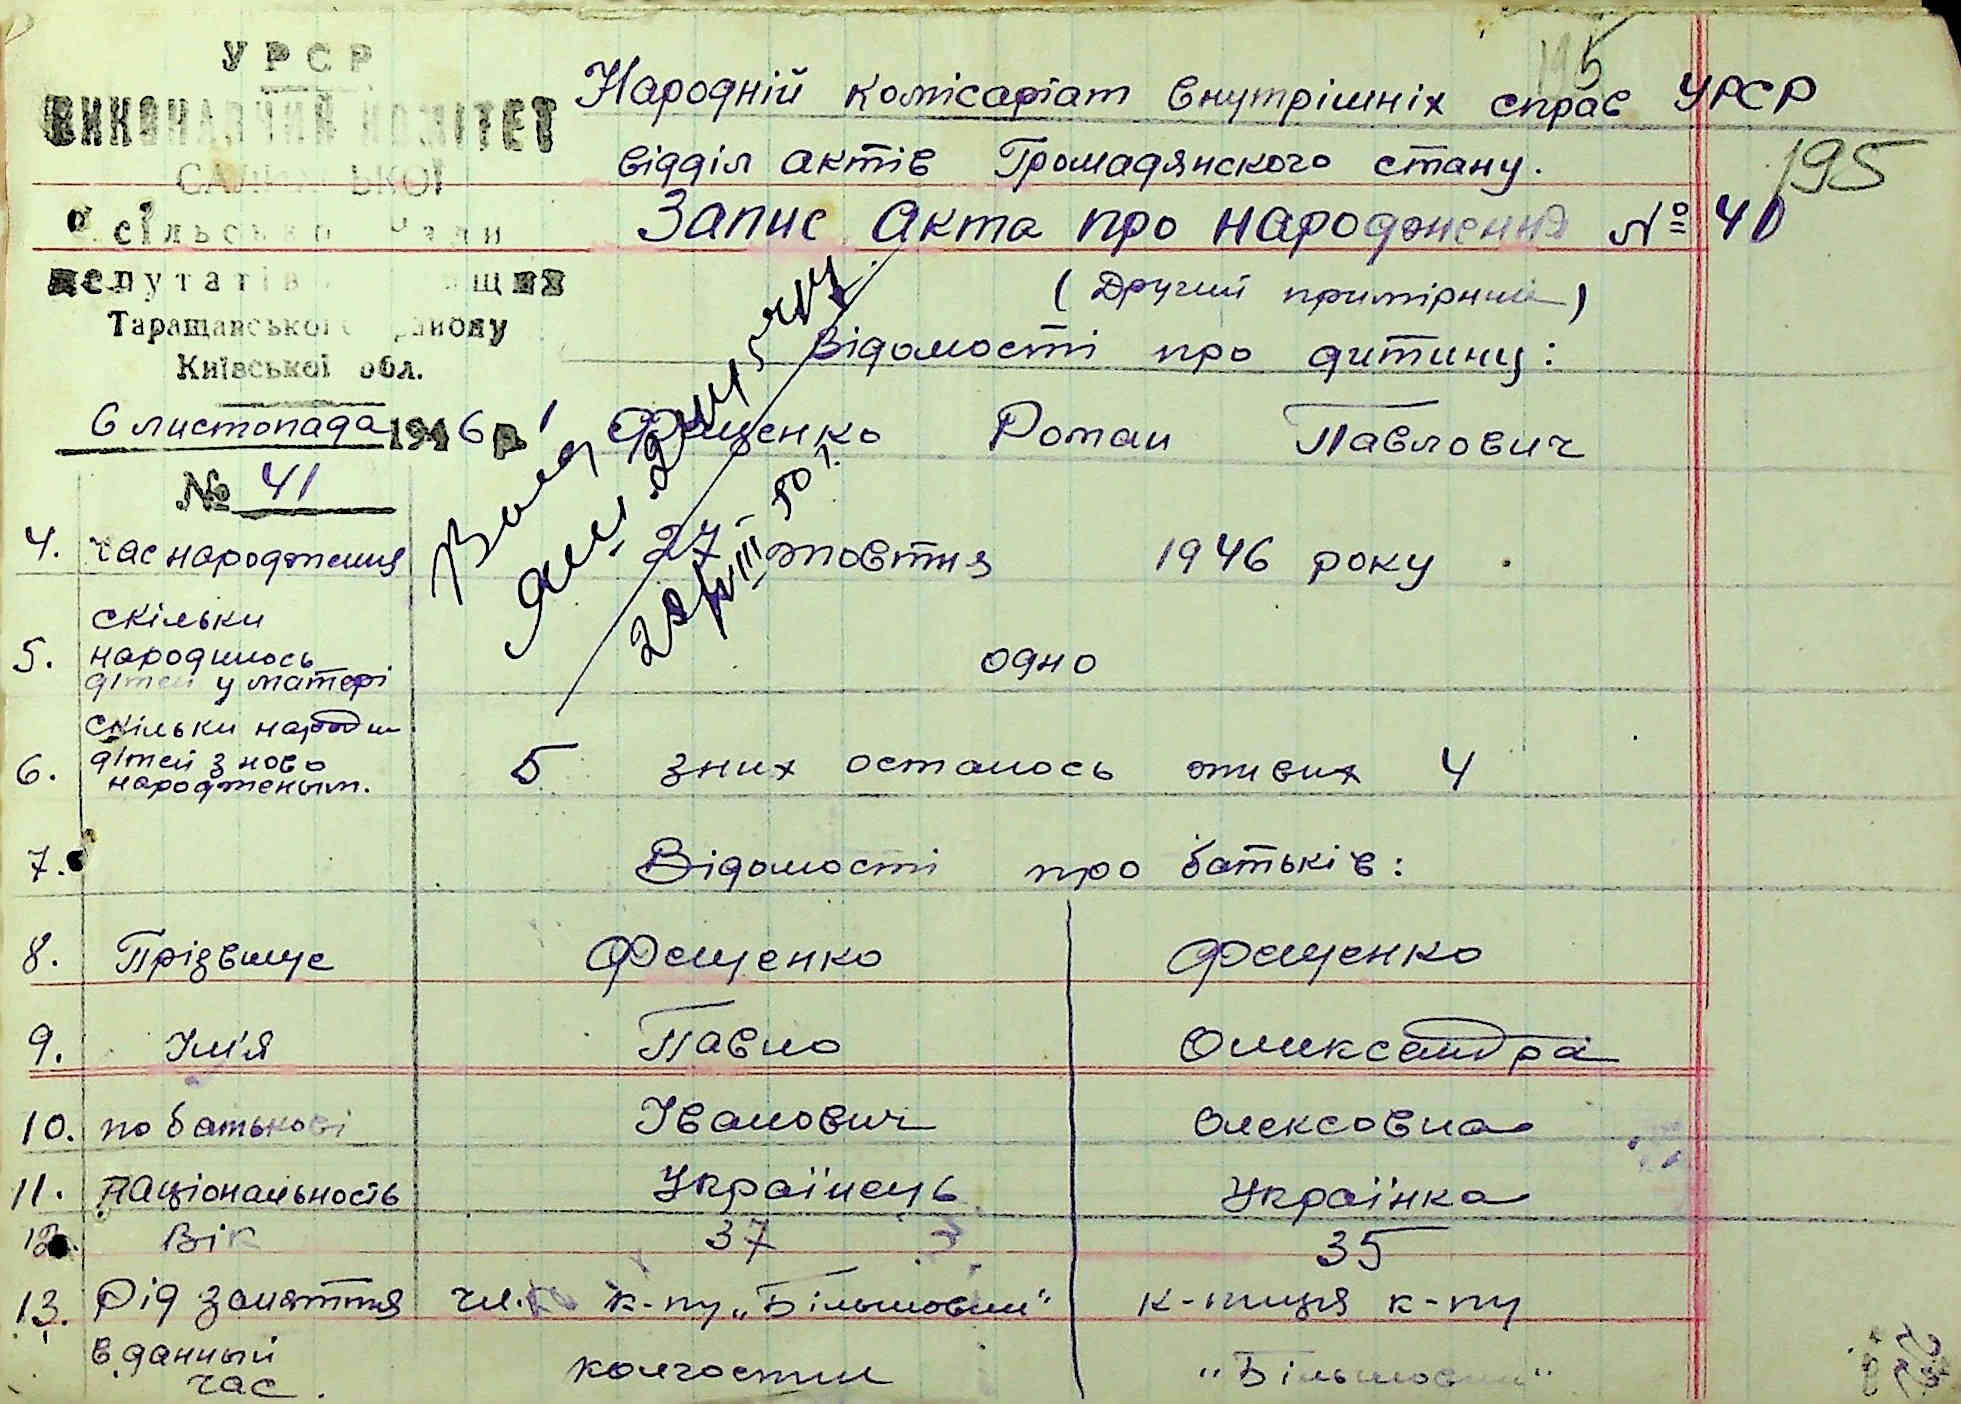 УРСР
ВИКОНАВЧИЙ КОМІТЕТ
сільської Ради
депутатів трудящих
Таращанського району
Київської обл.
6 листопада 1946 р.
№ 41
195
Народній комісаріат внутрішніх справ УРСР
відділ актів Громадянского стану.
195
Запис акта про народження № 41
(Другий примірник)
Відомості про дитину:
Фещенко Роман Павлович
4. час народження 27 жовтня 1946 року
50 г.
5. скільки народилось дітей у матері одно
6. скільки народил дітей з ново народженым. 5 зних осталось живих 4
7. Відомості про батьків:
8. Прізвище Фещенко Фещенко
9. Ім'я Павло Олександра
10. по батькові Іванович Олексовна
11. Національность Українець Українка
12. Вік 37 35
13. Рід заняття чл. к-пу „Більшовик" к-ниця к-пу
в данный час. колгоспник "Більшовик"